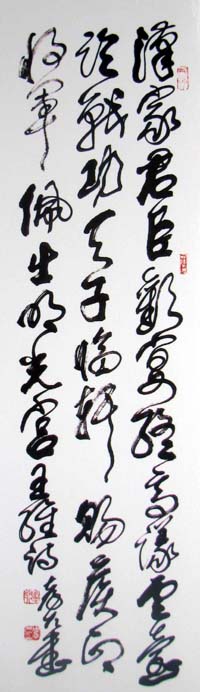 漢家君臣歡宴終高議云臺
論戰功天子臨軒賜侯印
將軍佩出明光宮王維詩書